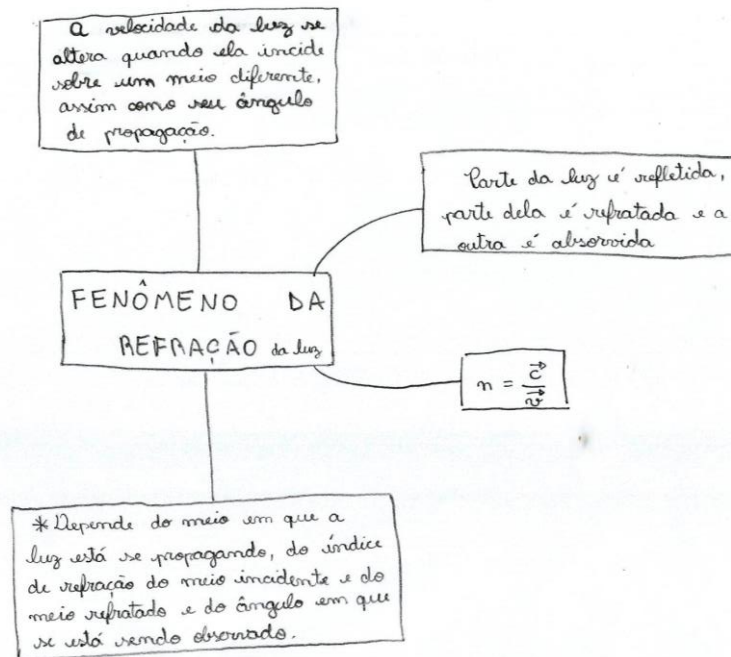 A velocidade da luz se
altera quando ela incide
sobre um meio diferente,
assim como seu ângulo
de propagação.
Parte da luz é refletida,
parte dela é refratada e a
outra é absorvida
FENÔMENO DA
REFRAÇÃO da luz
n = c⃗/v⃗
* Depende do meio em que a
luz está se propagando, do índice
de refração do meio incidente e do
meio refratado e do ângulo em que
se está sendo observado.